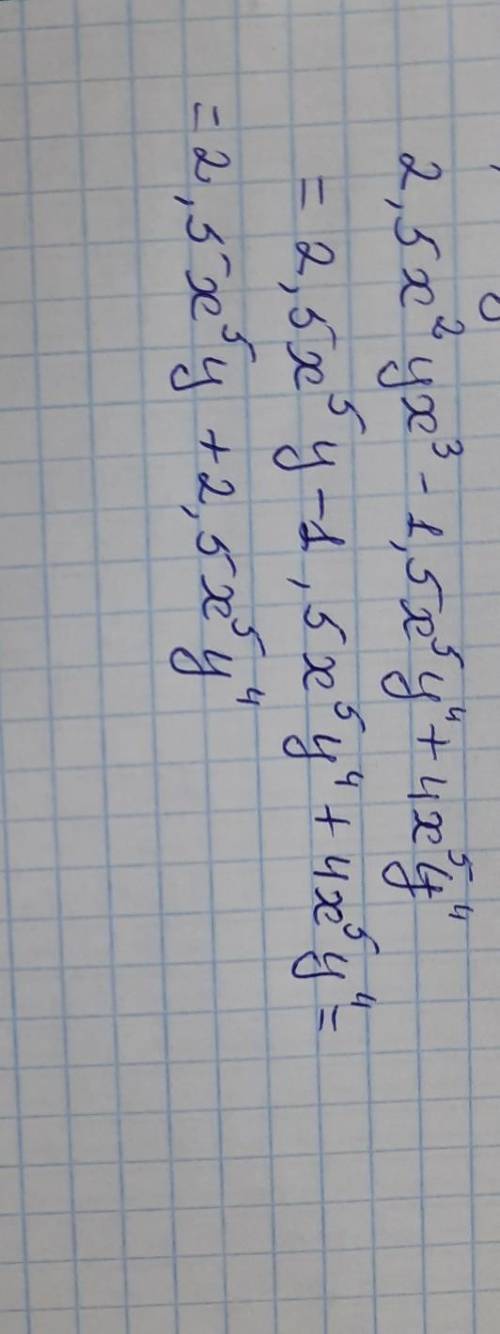 2,5x²yx³ - 1,5x⁵y⁴ + 4x⁵y⁴
= 2,5x⁵y - 1,5x⁵y⁴ + 4x⁵y⁴ =
= 2,5x⁵y + 2,5x⁵y⁴